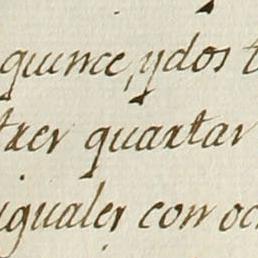 quince, y dos
tres quartas
iguales con oc